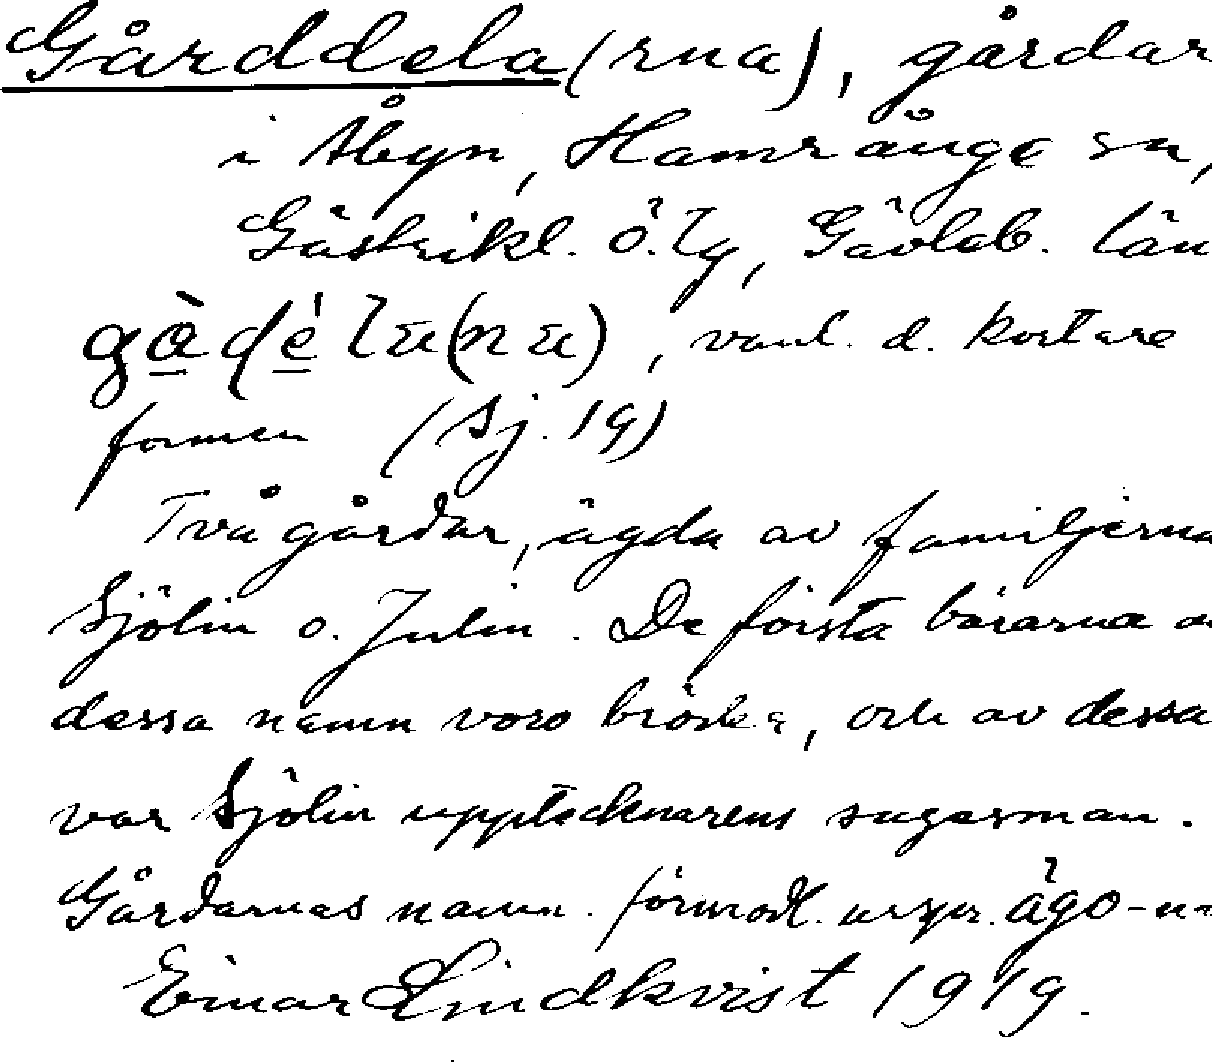 Gårddela(rna), gårdar
i Åbyn, Hamrånge sn,
Gästrikl. ö. tg, Gävleb. län
gàdè́la(na), vanl. d. kortare
formen (Sj. 19)
Två gårdar, ägda av familjerna
Sjölin o. Julin. De första bärarna av
dessa namn voro bröder, och av dessa
var Sjölin upptecknarens sagesman.
Gårdarnas namn förmodl. urspr. ägo-n-
Einar Lindkvist 1919.